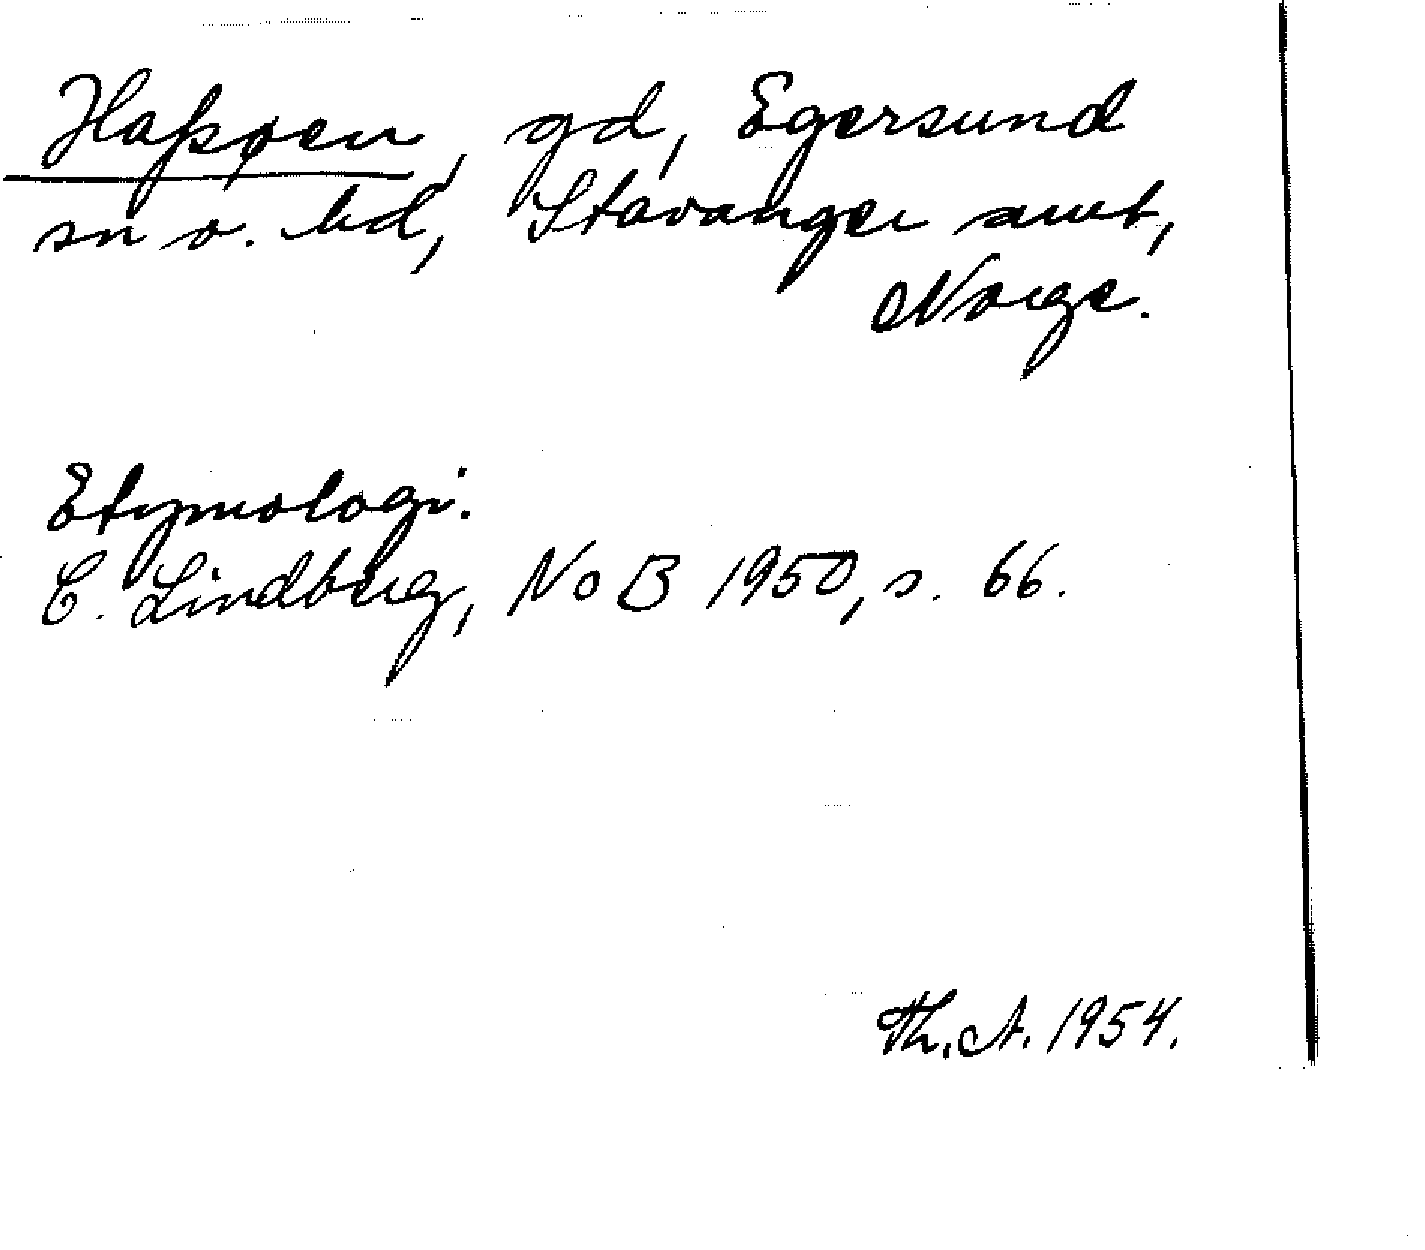 Hafsøen, gd, Egersund
sn o. hd, Stavanger amt,
Norge.
Etymologi:
C. Lindberg, NoB 1950, s. 66.
Th. A. 1954.